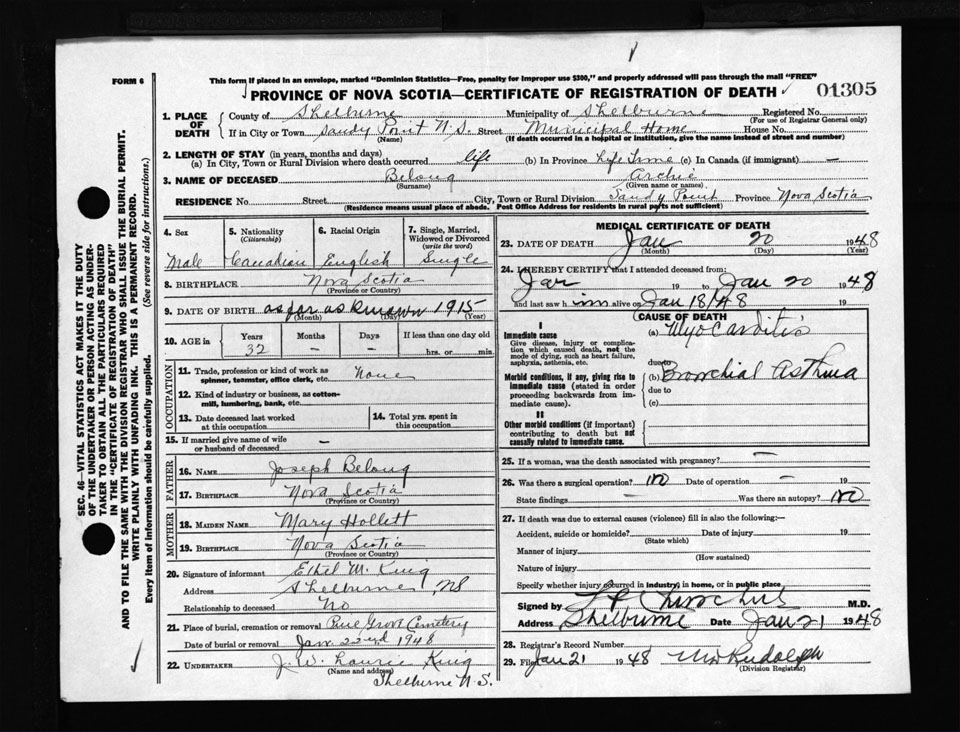 FORM 6
This form if placed in an envelope, marked "Dominion Statistics—Free, penalty for improper use $300," and properly addressed will pass through the mail "FREE"
PROVINCE OF NOVA SCOTIA—CERTIFICATE OF REGISTRATION OF DEATH
01305
1. PLACE OF DEATH
County of Shelburne Municipality of Shelburne Registered No.
(For use of Registrar General only)
If in City or Town Sandy Point N.S. Street Municipal Home House No.
(Name) (If death occurred in a hospital or institution, give the name instead of street and number)
2. LENGTH OF STAY (in years, months and days)
(a) In City, Town or Rural Division where death occurred life (b) In Province Life Time (c) In Canada (if immigrant) —
3. NAME OF DECEASED Belong Archie
(Surname) (Given name or names)
RESIDENCE No. Street City, Town or Rural Division Sandy Point Province Nova Scotia
(Residence means usual place of abode. Post Office Address for residents in rural parts not sufficient)
4. Sex Male
5. Nationality (Citizenship) Canadian
6. Racial Origin English
7. Single, Married, Widowed or Divorced (write the word) Single
8. BIRTHPLACE Nova Scotia
(Province or Country)
9. DATE OF BIRTH as far as known 1915
(Month) (Day) (Year)
10. AGE in Years Months Days If less than one day old
32 – – hrs. or min.
OCCUPATION
11. Trade, profession or kind of work as spinner, teamster, office clerk, etc. None
12. Kind of industry or business, as cotton-mill, lumbering, bank, etc.
13. Date deceased last worked at this occupation
14. Total yrs. spent in this occupation
15. If married give name of wife or husband of deceased –
FATHER
16. NAME Joseph Belong
17. BIRTHPLACE Nova Scotia
(Province or Country)
MOTHER
18. MAIDEN NAME Mary Hollett
19. BIRTHPLACE Nova Scotia
(Province or Country)
20. Signature of informant Ethel M. King
Address Shelburne, NS
Relationship to deceased No
21. Place of burial, cremation or removal Pine Grove Cemetery
Date of burial or removal Jan. 22nd 1948
22. UNDERTAKER J. W. Laurie King
(Name and address)
Shelburne N.S.
MEDICAL CERTIFICATE OF DEATH
23. DATE OF DEATH Jan 20 1948
(Month) (Day) (Year)
24. I HEREBY CERTIFY that I attended deceased from:
Jan 19 to Jan 20 1948
and last saw him alive on Jan 18/48 19
CAUSE OF DEATH
I
Immediate cause
Give disease, injury or complication which caused death, not the mode of dying, such as heart failure, asphyxia, asthenia, etc.
(a) Myocarditis
due to
Morbid conditions, if any, giving rise to immediate cause (stated in order proceeding backwards from immediate cause).
(b) Bronchial Asthma
due to
(c)
II
Other morbid conditions (if important) contributing to death but not causally related to immediate cause.
25. If a woman, was the death associated with pregnancy? —
26. Was there a surgical operation? No Date of operation – 19
State findings – Was there an autopsy? No
27. If death was due to external causes (violence) fill in also the following:—
Accident, suicide or homicide? Date of injury 19
(State which)
Manner of injury
(How sustained)
Nature of injury
Specify whether injury occurred in industry, in home, or in public place
Signed by Churchill M.D.
Address Shelburne Date Jan 21 1948
28. Registrar's Record Number
29. Filed Jan 21 1948 Rudolph
(Division Registrar)
SEC. 46—VITAL STATISTICS ACT MAKES IT THE DUTY
OF THE UNDERTAKER OR PERSON ACTING AS UNDER-
TAKER TO OBTAIN ALL THE PARTICULARS REQUIRED
IN THE "CERTIFICATE OF REGISTRATION OF DEATH"
AND TO FILE THE SAME WITH THE DIVISION REGISTRAR WHO SHALL ISSUE THE BURIAL PERMIT.
WRITE PLAINLY WITH UNFADING INK. THIS IS A PERMANENT RECORD.
Every item of information should be carefully supplied. (See reverse side for instructions.)